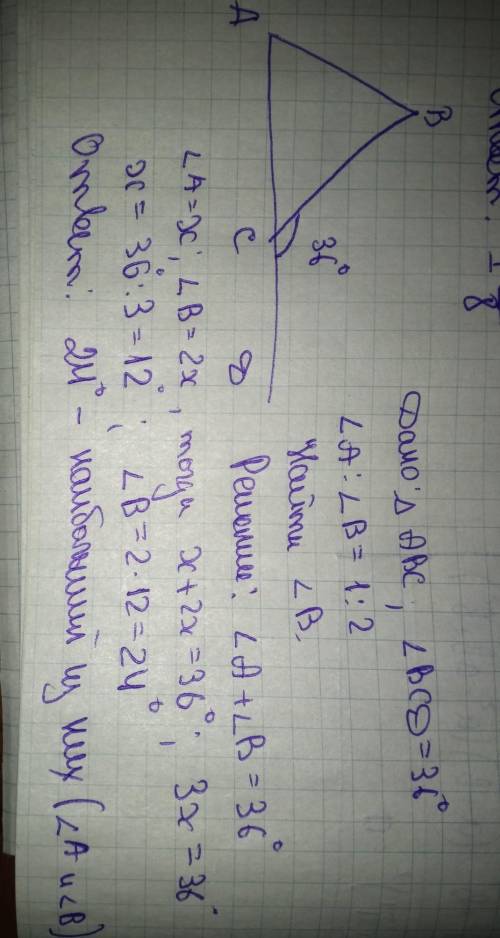 Ответ: ± 
A
B
C
D
36°
Дано: Δ ABC; ∠BCD = 36°
∠A : ∠B = 1 : 2
Найти ∠B.
Решение: ∠A + ∠B = 36°
∠A = x; ∠B = 2x, тогда x + 2x = 36°; 3x = 36°
x = 36° : 3 = 12°; ∠B = 2 · 12 = 24°
Ответ: 24° – наибольший из них (∠A и ∠B)